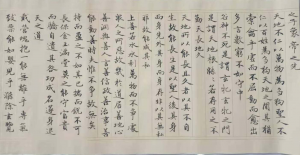 之子象帝之先
天地不仁以萬物為芻狗聖人不
仁以百姓為芻狗天地之間其猶
橐籥乎虛而不屈動而愈出
多言數窮不如守中
谷神不死是謂玄牝玄牝之門
是謂天地根綿綿若存用之不
勤天長地久
天地所以能長且久者以其不自
生故能長生是以聖人後其身
而身先外其身而身存非以其無私
耶故能成其私
上善若水水善利萬物而不爭處
眾人之所惡故幾於道居善地心
善淵與善仁言善信政善治事善
能動善時夫惟不爭故無尤
持而盈之不如其已揣而銳之不可
長保金玉滿堂莫之能守富貴
而驕自遺其咎功成名遂身退
天之道
載營魄抱一能無離乎專氣
致柔能如嬰兒乎滌除玄覽